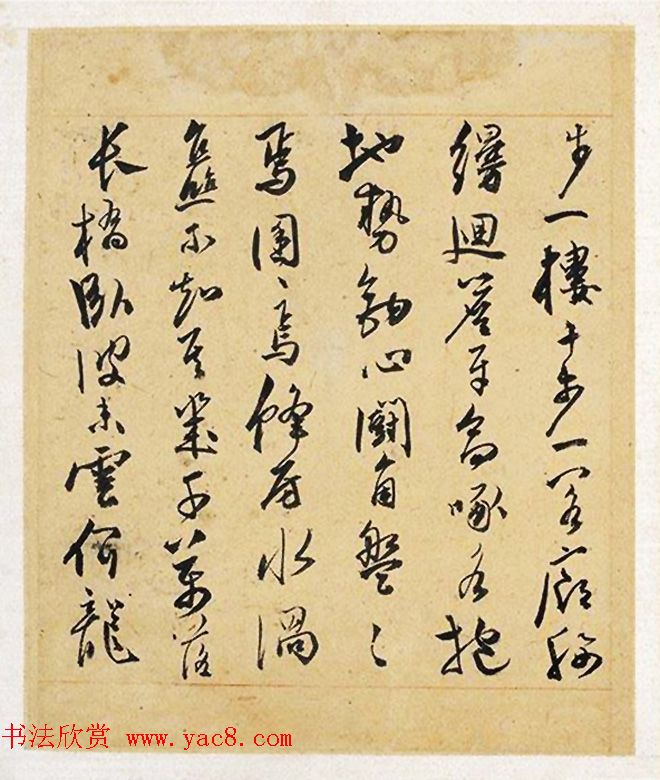 步一樓十步一閣廊腰
縵迴簷牙高啄各抱
地勢鉤心鬭角盤〻
焉囷〻焉蜂房水渦
矗不知其幾千萬落
長橋臥波未雲何龍
书法欣赏 www.yac8.com